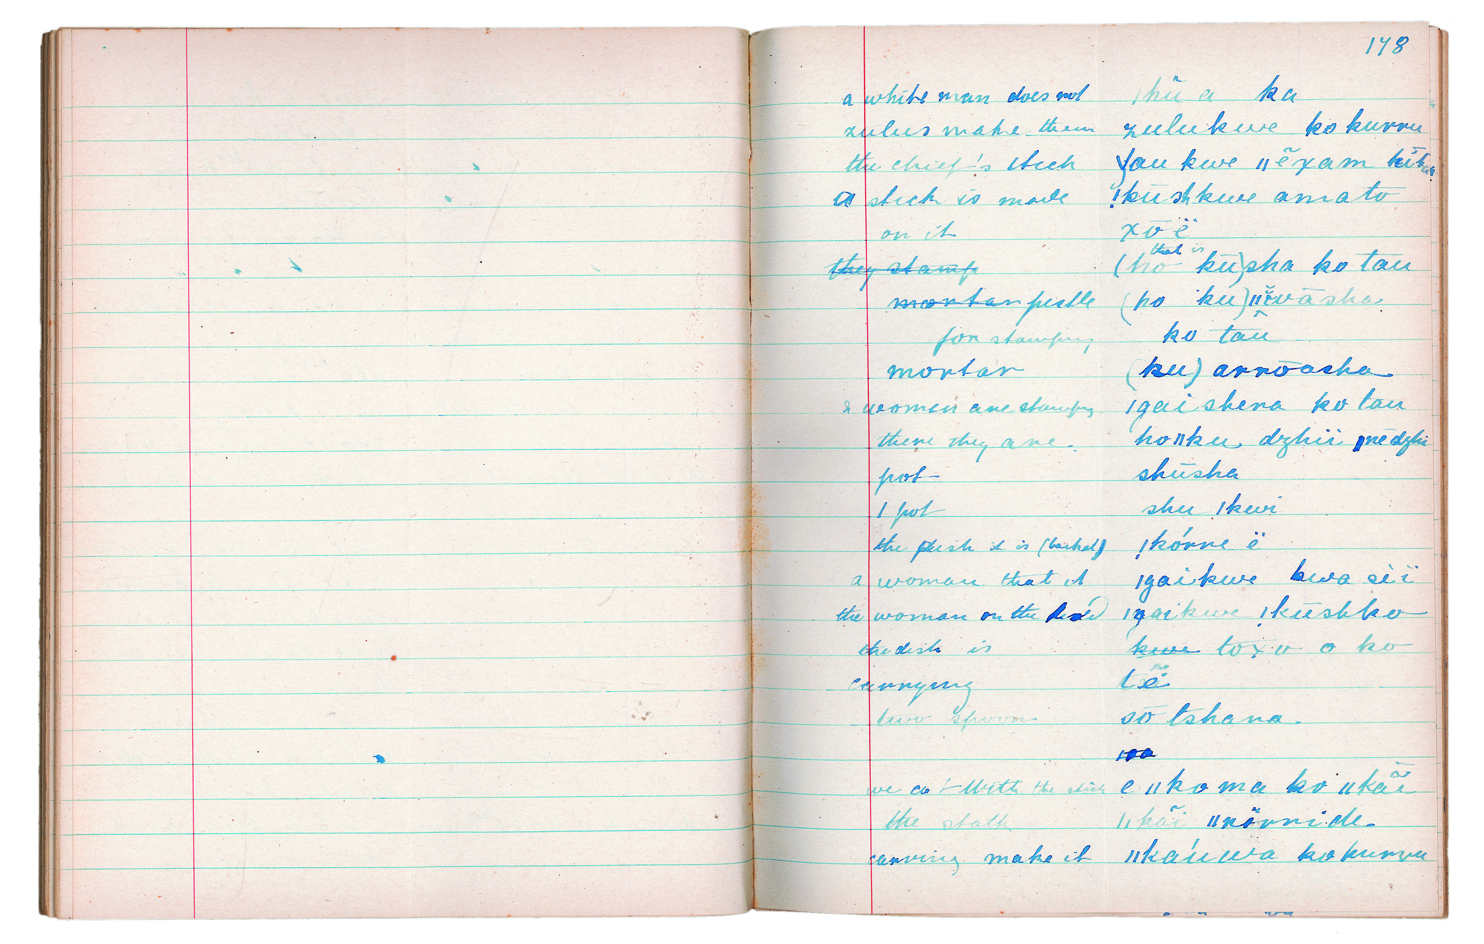 178
a white man does not ǀhũ a ka
zulus make them zulukwe kokurru
the chief's stick ǁĕxam
a stick is made ǃkūshkwe amato
on it xōë
that is
~~they stamp~~ (ho kū)sha ko tau
~~mortar~~ pestle (ho ku)
for stamping ko taũ
mortar (ku) arrōasha
2 women are stamping ǀgai shena ko tau
there they are. hoǁku dzhii
pot shūsha
1 pot shu ǀkwi
the dish it is (basket) ǃkórre ë
a woman that is ǀgaikwe kwa
the woman on the head ǀgaikwe ǃkūshko
the dish is ~~kwe~~ toxo o ko
carrying
two spoons sō tshana
we cut with the stick e ǁkoma ko ǁkãi
the stalk ǁkãi
carving make it ǁkáuwa kokurru